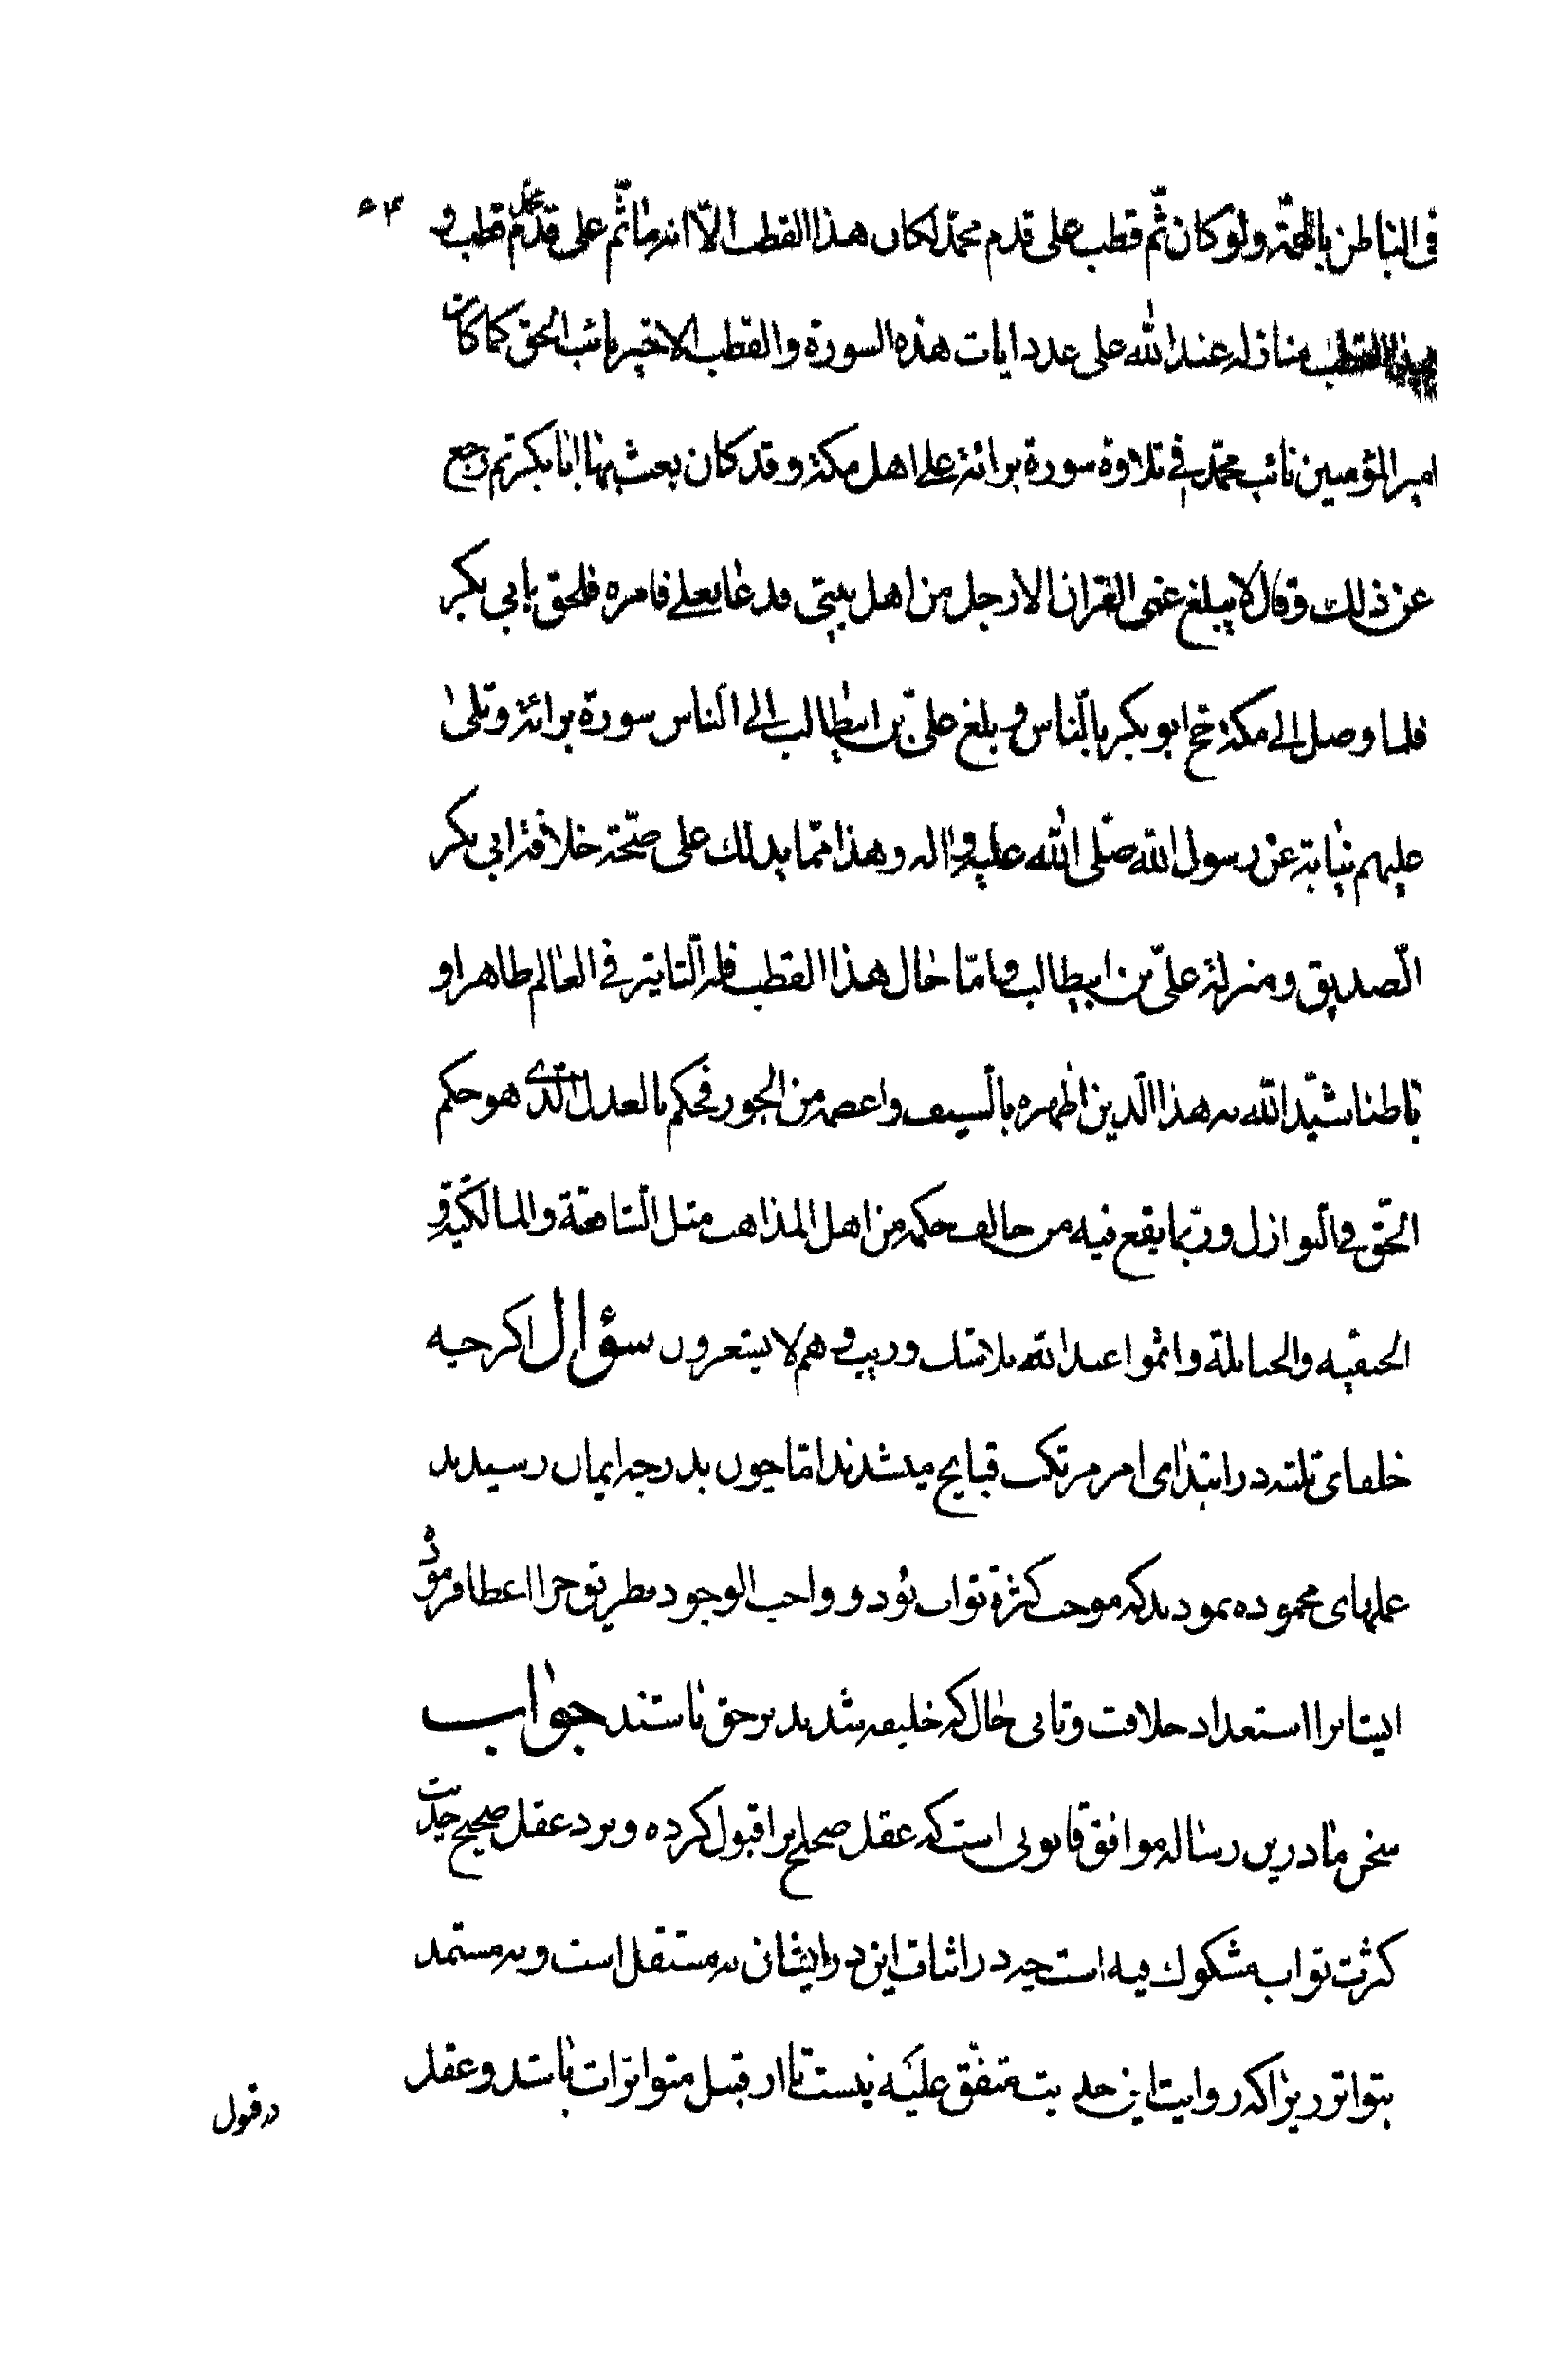 ۶۴
فی الباطن بالهمّة ولو کان ثمّ قطب علی قدم محمّد لکان هذا القطب الّا انه ماثمّ علی قدم محمد قطب و
هذا القطب منازله عند الله علی عدد ایات هذه السورة والقطب الاخیر نائب الحق کما کان
امیر المؤمنین نائب محمّد فی تلاوة سورة برائة علی اهل مکة و قد کان بعث بها ابابکر ثم رجع
عن ذلک و قال لا یبلغ عنی القران الا رجل من اهل بیتی فدعا بعلی فامره فلحق بابی بکر
فلما وصل الی مکة حجّ ابو بکر بالنّاس و بلغ علیّ بن ابیطالب الی النّاس سورة برائة و تلی
علیهم نیابة عن رسول الله صلّی الله علیه و اله و هذا ممّا یدلک علی صحّة خلافة ابی بکر
الصّدیق و منزلة علیّ بن ابیطالب و امّا حال هذا القطب فله التّاثیر فی العالم ظاهرا و
باطنا شیّد الله به هذا الّدین اظهره بالّسیف و اعصمه من الجور فحکم بالعدل الّذی هو حکم
الحّق فی الّنوازل و ربّما یقع فیه من خالف حکمه من اهل المذاهب مثل الّشافعیّة والمالکیّة و
الحنفیه والحنابلة وانثموا عند الله بلا شک و ریب و هم لا یشعرون سؤال اکرچه
خلفای ثلثه در ابتدای امر مرتکب قبایح میشدند امّا چون بدرجه ایمان رسیدند
عملهای محموده نمودند که موجب کثرة ثواب بود و واجب الوجود بطریق جزا اعطا فرموده
ایشانرا استعداد خلافت و تا بی حال که خلیفه شدند بر حق باشند جواب
سخن ما درین رساله موافق قانونی است که عقل صحیح انرا قبول کرده و نزد عقل صحیح حدیث
کثرت ثواب مشکوک فیه است چه در اثبات این در ایشان نه مستقل است و نه مستمد
بتواتر زیرا که روایت این حدیث متفّق علیه نیست تا از قبیل متواترات باشد و عقل
در قبول